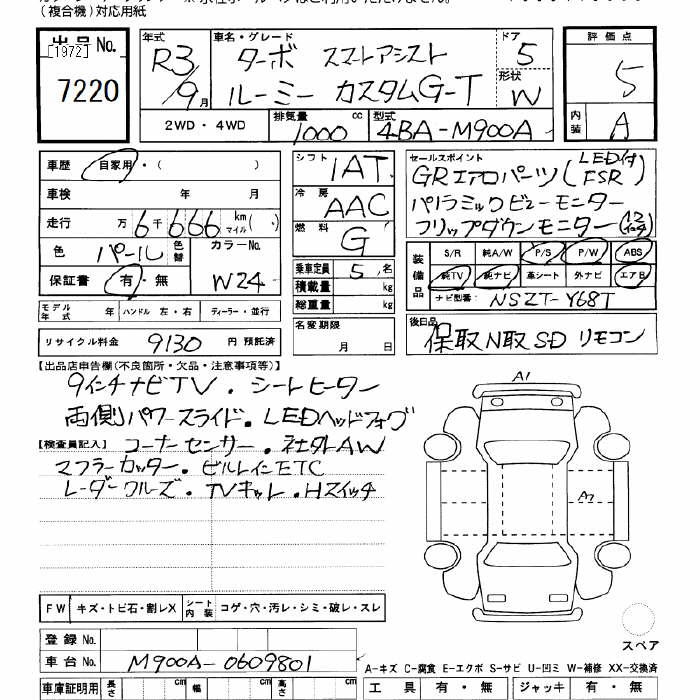 (複合機)対応用紙
出品No. [1972] 7220
年式 R3/9月
車名・グレード ターボ スマートアシスト
ルーミー カスタムG-T
ドア 5
形状 W
評価点 5
内装 A
2WD・4WD
排気量 1000 cc
型式 4BA-M900A
車歴 自家用・( )
車検 年 月
走行 万 6千 666 km マイル( )
色 パール 色替 カラーNo. W24
保証書 有・無
モデル年式 年 ハンドル 左・右 ディーラー・並行
リサイクル料金 9130 円 預託済
シフト 1AT
冷房 AAC
燃料 G
乗車定員 5 名
積載量 kg
総重量 kg
名変期限 月 日
セールスポイント GRエアロパーツ(LED付 FSR)
パノラミックビューモニター
フリップダウンモニター(12インチ)
装備品 S/R 純A/W P/S P/W ABS
純TV 純ナビ 革シート 外ナビ エアB
ナビ型番: NSZT-Y68T
後日品 保取 N取 SD リモコン
【出品店申告欄(不良箇所・欠品・注意事項等)】
9インチナビTV・シートヒーター
両側パワースライド・LEDヘッドフォグ
【検査員記入】コーナーセンサー・社外AW
マフラーカッター・ビルトインETC
レーダークルーズ・TVキット・Hスイッチ
A1
A2
スペア
FW キズ・トビ石・割レX シート内装 コゲ・穴・汚レ・シミ・破レ・スレ
登録No.
車台No. M900A-0609801
A-キズ C-腐食 E-エクボ S-サビ U-凹ミ W-補修 XX-交換済
車庫証明用 長さ cm 幅 cm 高さ cm
工具 有・無 ジャッキ 有・無